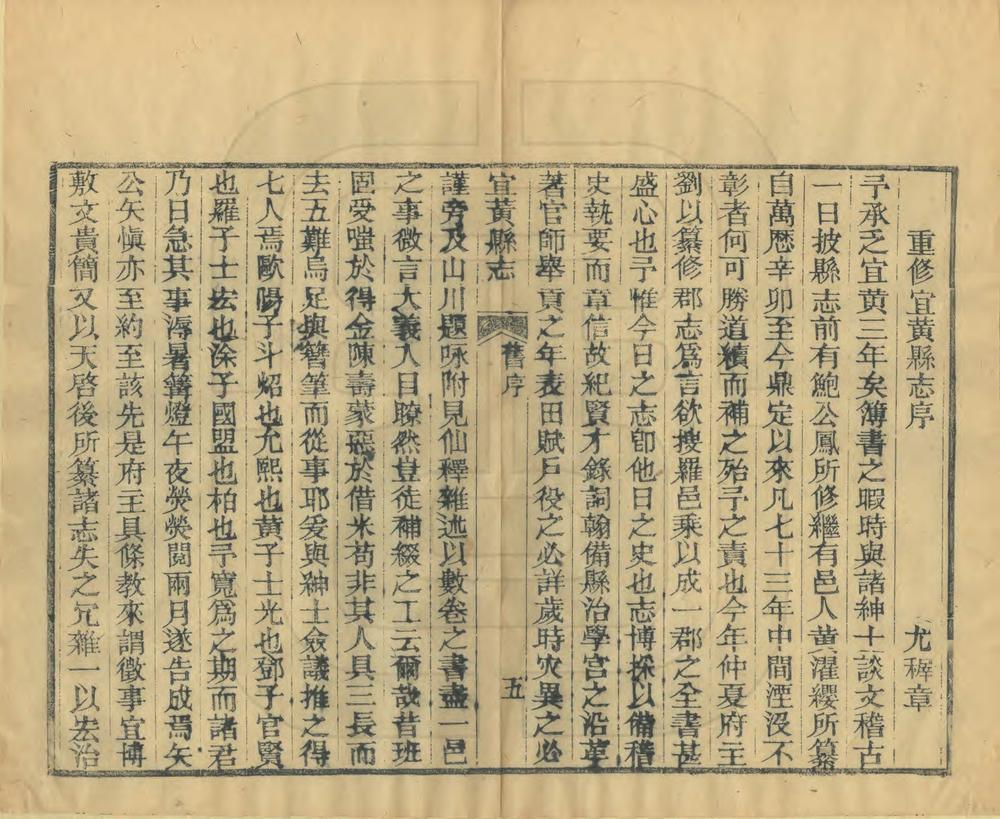 重修宜黃縣志序　尤稺章
予承乏宜黃三年矣簿書之暇時與諸紳士談文稽古
一日披縣志前有鮑公鳳所修繼有邑人黃濯纓所纂
自萬歷辛卯至今鼎定以來凡七十三年中間湮沒不
彰者何可勝道續而補之殆予之責也今年仲夏府主
劉以纂修郡志爲言欲搜羅邑乘以成一郡之全書甚
盛心也予惟今日之志卽他日之史也志博採以備稽
史執要而章信故紀賢才錄詞翰備縣治學宮之沿革
著官師舉貢之年表田賦戶役之必詳歲時灾異之必
宜黃縣志　舊序　五
謹旁及山川題咏附見仙釋雜述以數卷之書盡一邑
之事微言大義入目瞭然豈徒補綴之工云爾哉昔班
固受嗤於得金陳壽蒙惡於借米苟非其人具三長而
去五難烏足與簪筆而從事耶爰與紳士僉議推之得
七人焉歐陽子斗炤也允熙也黃子士光也鄧子官賢
也羅子士宏也涂子國盟也柏也予寬爲之期而諸君
乃日急其事溽暑篝燈午夜熒熒閱兩月遂告成焉矢
公矢愼亦至約至該先是府主具條教來謂徵事宜博
敷文貴簡又以天啓後所纂諸志失之冗雜一以宏治